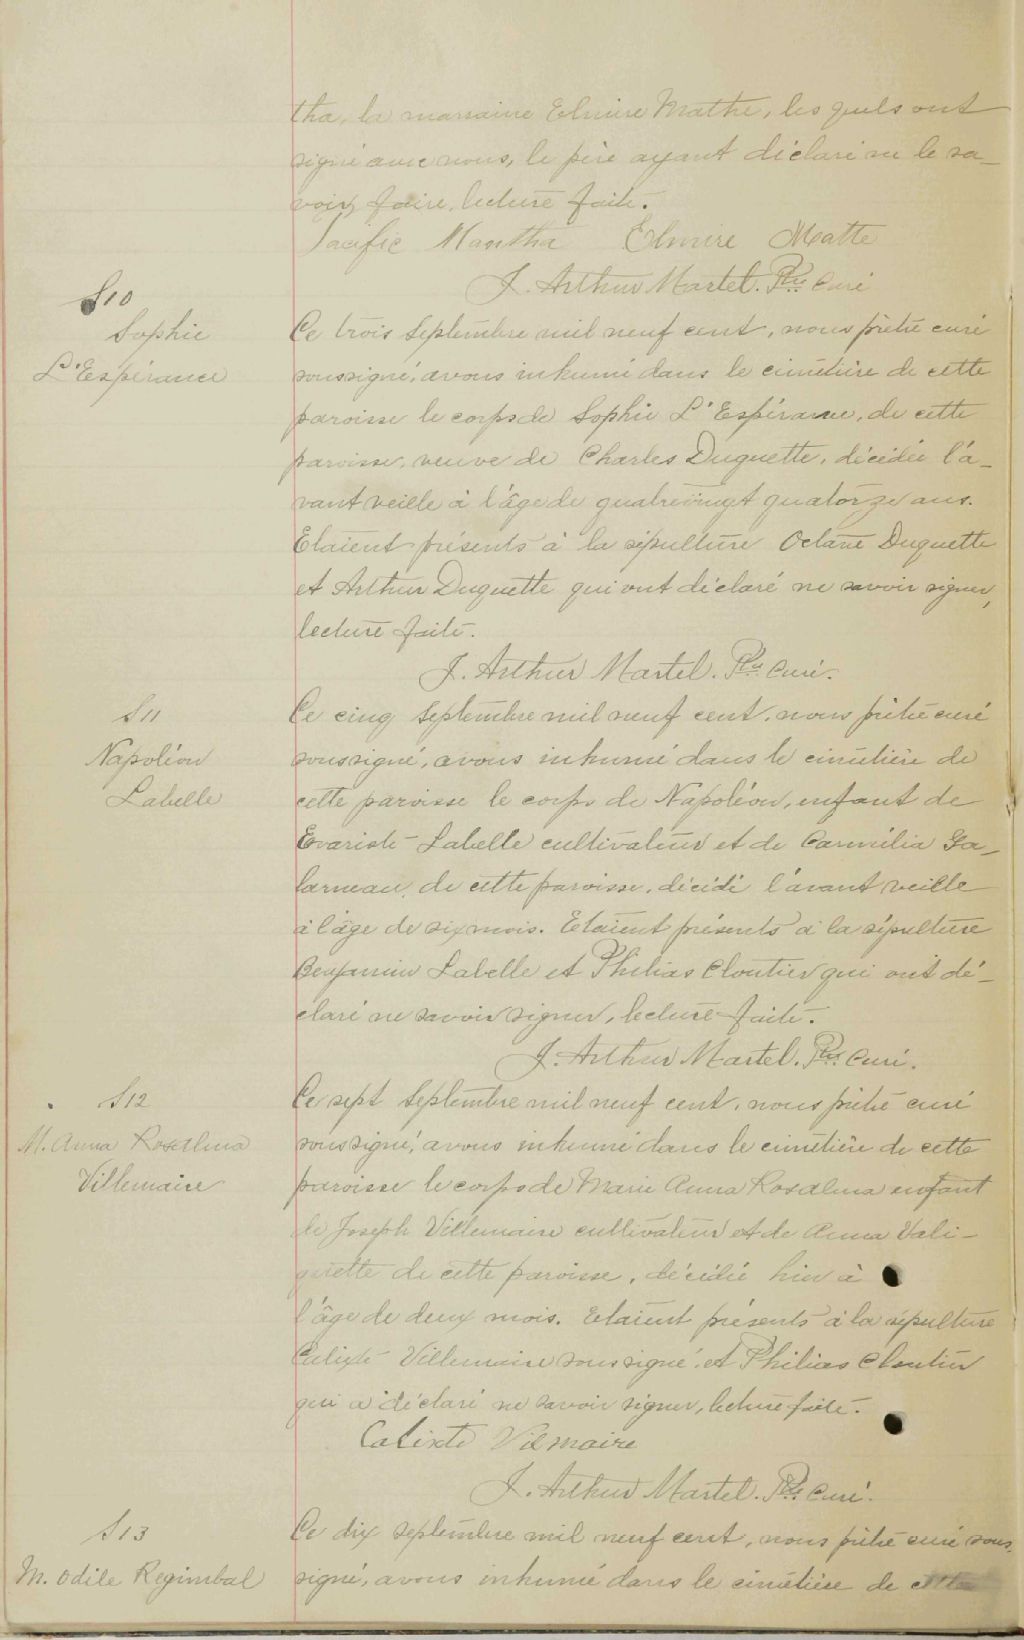 tha, la marraine Elmire Mathe, les quels ont
signé avec nous, le père ayant déclaré ne le sa-
voir faire, lecture faite.
Pacific Mantha Elmire Matte
J. Arthur Martel. Ptre Curé
S10
Sophie
L'Espérance
Ce trois Septembre mil neuf cent, nous prêtre curé
soussigné, avons inhumé dans le cimetière de cette
paroisse le corps de Sophie L'Espérance, de cette
paroisse, veuve de Charles Duquette, décédée l'a-
vant veille à l'âge de quatrevingt quatorze ans.
Etaient présents à la sépulture Octave Duquette
et Arthur Duquette qui ont déclaré ne savoir signer,
lecture faite.
J. Arthur Martel. Ptre Curé.
S11
Napoléon
Labelle
Ce cinq Septembre mil neuf cent, nous prêtre curé
soussigné, avons inhumé dans le cimetière de
cette paroisse le corps de Napoléon, enfant de
Evariste Labelle cultivateur et de Carmélia Ga-
larneau, de cette paroisse, décédé l'avant veille
à l'âge de six mois. Etaient présents à la sépulture
Benjamin Labelle et Philias Cloutier qui ont dé-
claré ne savoir signer, lecture faite.
J. Arthur Martel. Ptre Curé.
S12
M. Anna Rosalma
Villemaire
Ce sept Septembre mil neuf cent, nous prêtre curé
soussigné, avons inhumé dans le cimetière de cette
paroisse le corps de Marie Anna Rosalma enfant
de Joseph Villemaire cultivateur et de Anna Vali-
quette de cette paroisse, décédée hier à
l'âge de deux mois. Etaient présents à la sépulture
Calixte Villemaire soussigné et Philias Cloutier
qui a déclaré ne savoir signer, lecture faite.
Calixte Vilmaire
J. Arthur Martel. Ptre Curé.
S13
M. Odile Regimbal
Ce dix Septembre mil neuf cent, nous prêtre curé sous-
signé, avons inhumé dans le cimetière de cette